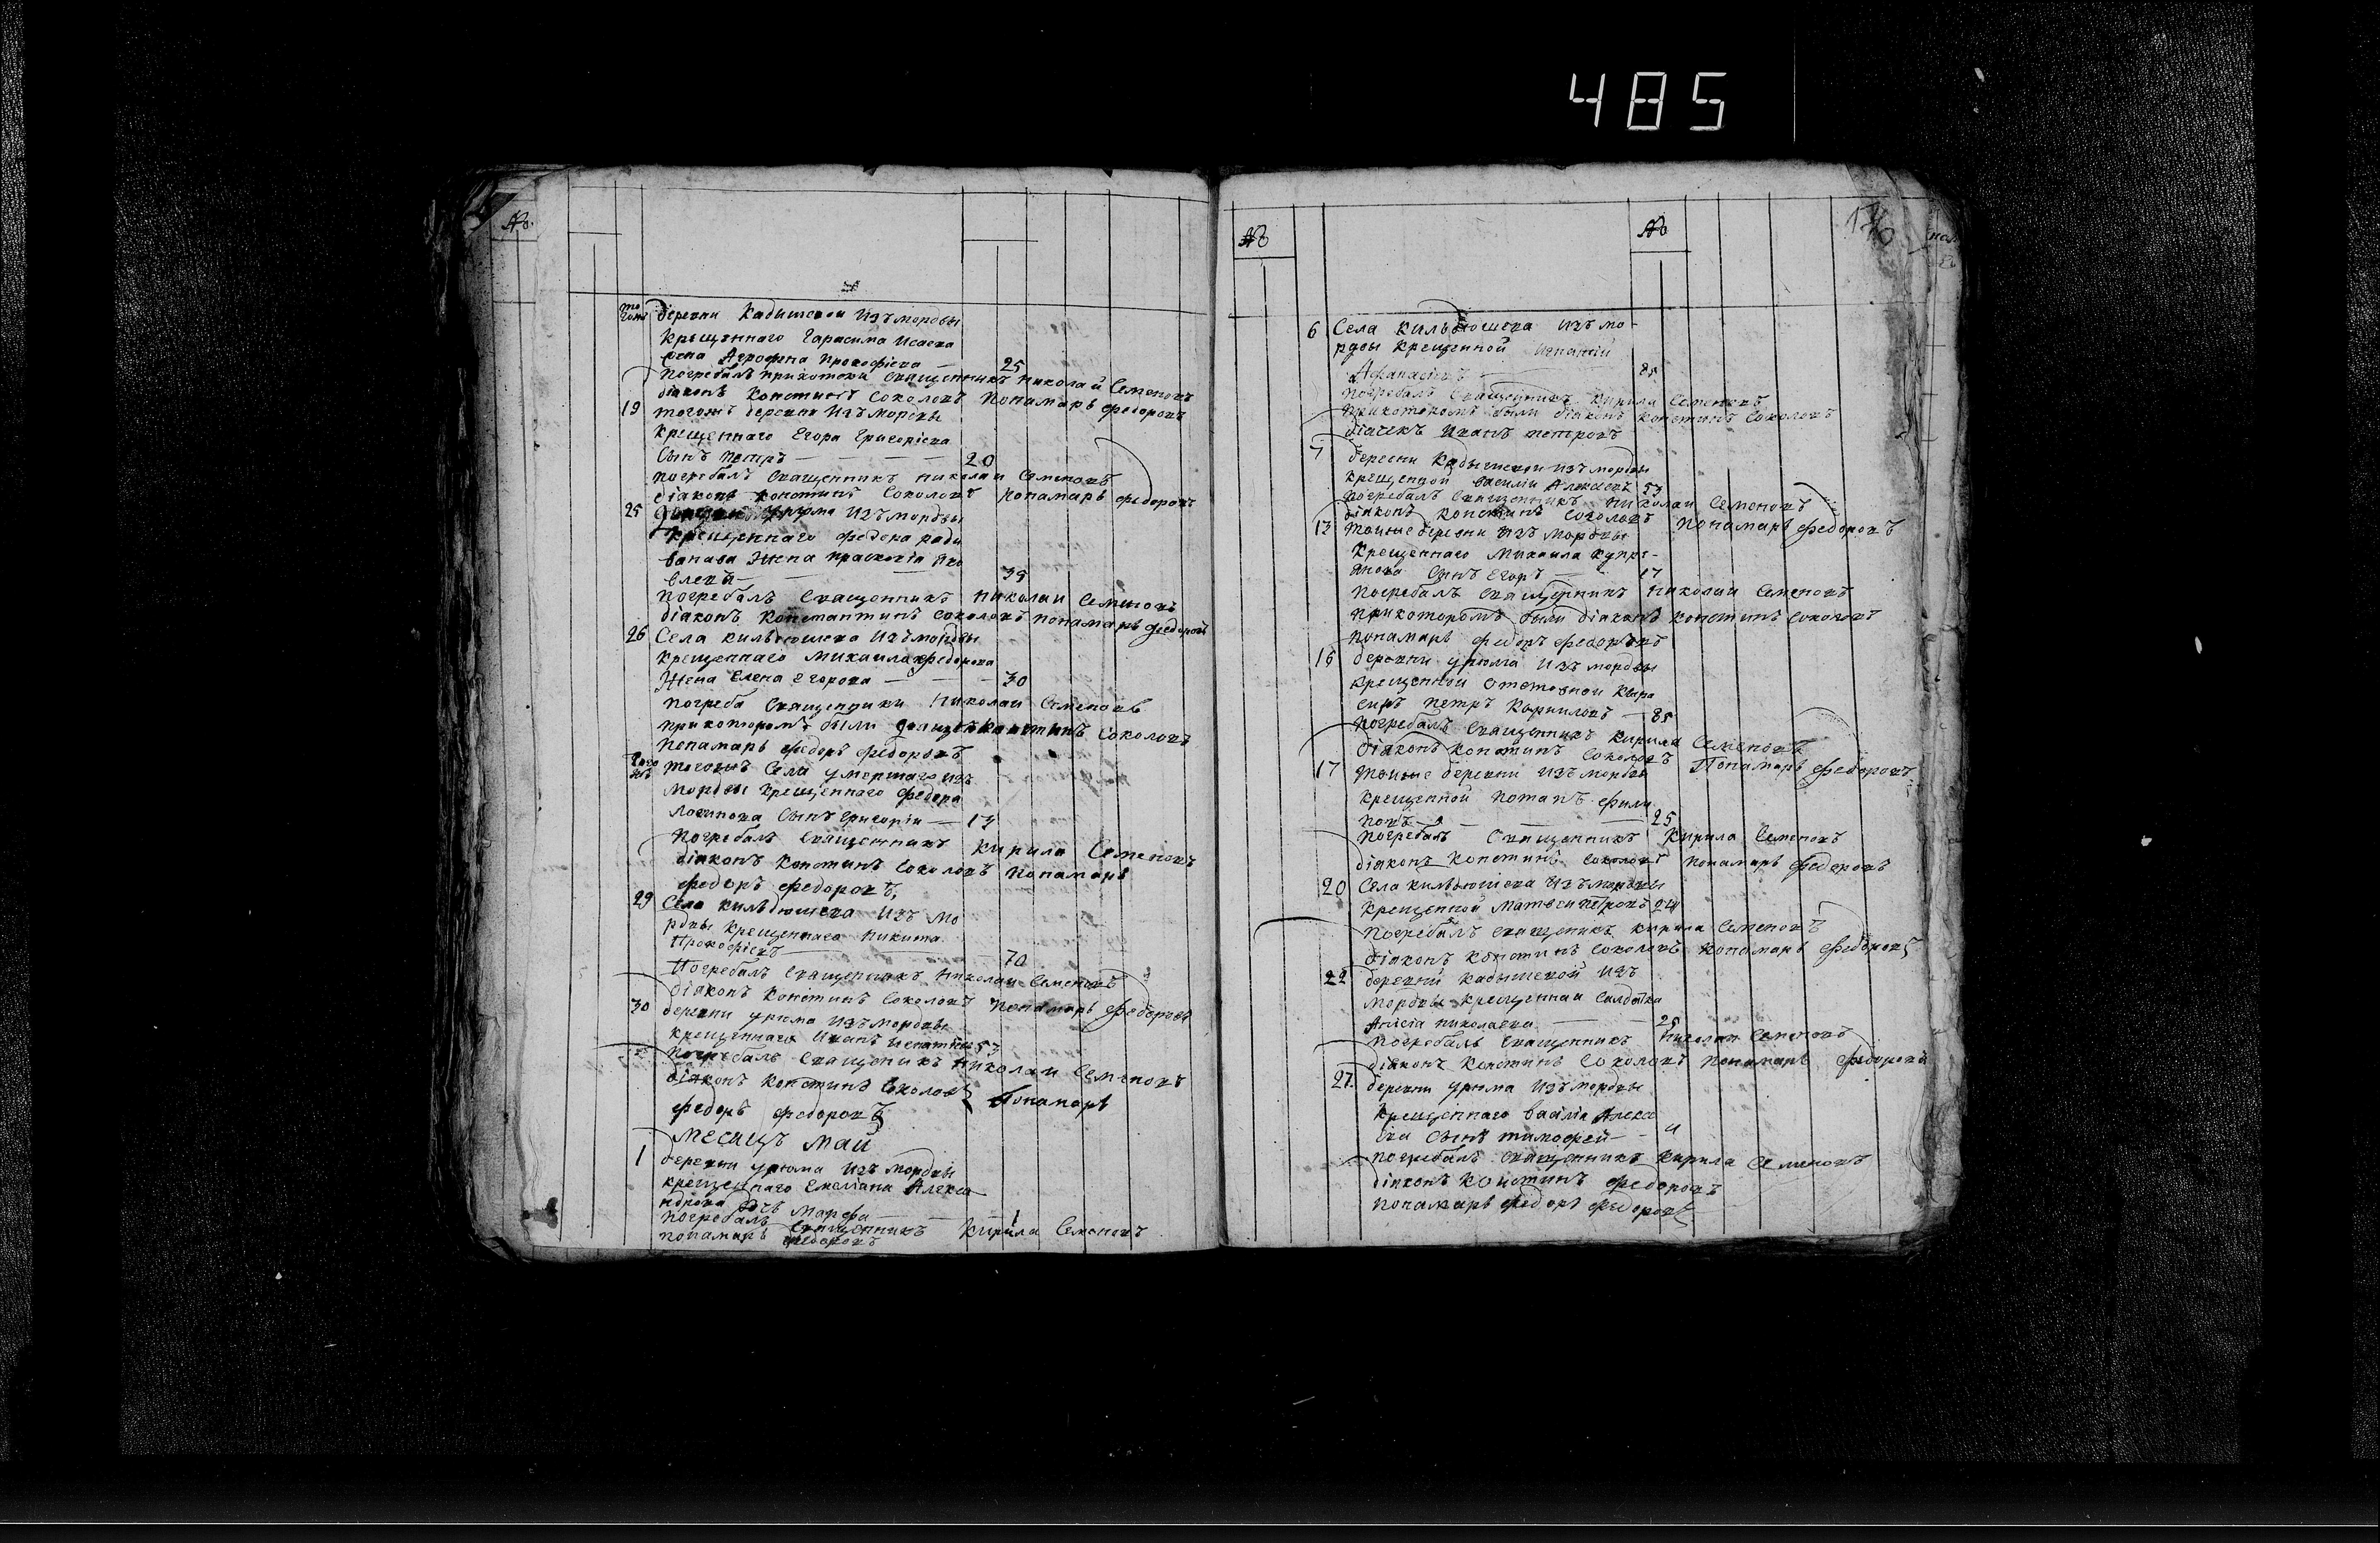 485
№
того
деревни Кадышевой изъ мордвы
крещеннаго Гарасима Исаева
жена Агрофина Прокофіева — 25
погребалъ прикотомъ священникъ Николай Семеновъ
діаконъ Констинъ Соколовъ понамарь Федоровъ
19 тогожъ деревни изъ мордвы
крещеннаго Егора Григоріева
сынъ Петръ — 20
погребалъ священникъ Николаи Семеновъ
діаконъ Констинъ Соколовъ понамарь Федоровъ
25 Урюма изъ мордвы
крещеннаго Федора Роди
ванава жена Прасковіа Яко
влева — 35
погребалъ священникъ Николаи Семеновъ
діаконъ Константинъ Соколовъ понамарь Федоровъ
26 Села Кильдюшева изъ мордвы
крещеннаго Михаила Федорова
жена Елена Егорова — 30
погреба священники Николаи Семеновъ
прикоторомъ были Соколовъ
понамарь Федоръ Федоровъ
тогожъ
тогожъ Села умершаго изъ
мордвы крещеннаго Федора
Логинова сынъ Григоріи — 17
погребалъ священникъ Кирила Семеновъ
діаконъ Констинъ Соколовъ понамарь
Федоръ Федоровъ
29 Села Кильдюшева изъ мо
рдвы крещеннаго Никита
Прокофіевъ — 70
погребалъ священникъ Николаи Семеновъ
діаконъ Констинъ Соколовъ понамарь Федоровъ
30 деревни Урюма изъ мордвы
крещеннаго Иванъ Игнатіевъ 53
погребалъ священикъ Николаи Семеновъ
діаконъ Констинъ Соколовъ понамарь
Федоръ Федоровъ
Месяцъ Май
1 деревни Урюма изъ мордвы
крещеннаго Емеліана Алекса
ндрова дочь Марфа — 1
погребалъ священникъ Кирила Семеновъ
понамарь Федоровъ
№ №
6 Села Кильдюшева изъ мо-
рдвы крещенной Игнатіи
Афанасіевъ — 85
погребалъ священникъ Кирила Семеновъ
прикоторомъ были діаконъ Констинъ Соколовъ
діачекъ Иванъ Петровъ
7 деревни Кадышевои изъ мордвы
крещенной Василіи Алексеевъ 53
погребалъ священникъ Николаи Семеновъ
діаконъ Констинъ Соколовъ понамарь Федоровъ
13 тойже деревни изъ мордвы
крещеннаго Михаила Купрі-
янова сынъ Егоръ — 17
погребалъ священникъ Николаи Семеновъ
прикоторомъ были діаконъ Констинъ Соколовъ
понамарь Федоръ Федоровъ
16 деревни Урюма изъ мордвы
крещенной отставной
Петръ Кариловъ — 85
погребалъ священникъ Кирила Семеновъ
діаконъ Констинъ Соколовъ Понамарь Федоровъ
17 тойже деревни изъ мордвы
крещенной Потапъ Фили
повъ — 25
погребалъ священникъ Кирила Семеновъ
діаконъ Констинъ Соколовъ понамарь Федоровъ
20 Села Кильдюшева изъ мордвы
крещенной Матвеи Петровъ
погребалъ священникъ Кирила Семеновъ
діаконъ Констинъ Соколовъ понамарь Федоровъ
22 деревни Кадышевой изъ
мордвы крещенная салдатка
Анісіа Николаева — 25
погребалъ священникъ Николаи Семеновъ
діаконъ Констинъ Соколовъ понамарь Федоровъ
27 деревни Урюма изъ мордвы
крещеннаго Васіліа Алексе
ева сынъ Тимофей —
погребалъ священникъ Кирила Семеновъ
діаконъ Констинъ Федоровъ
понамарь Федоръ Федоровъ